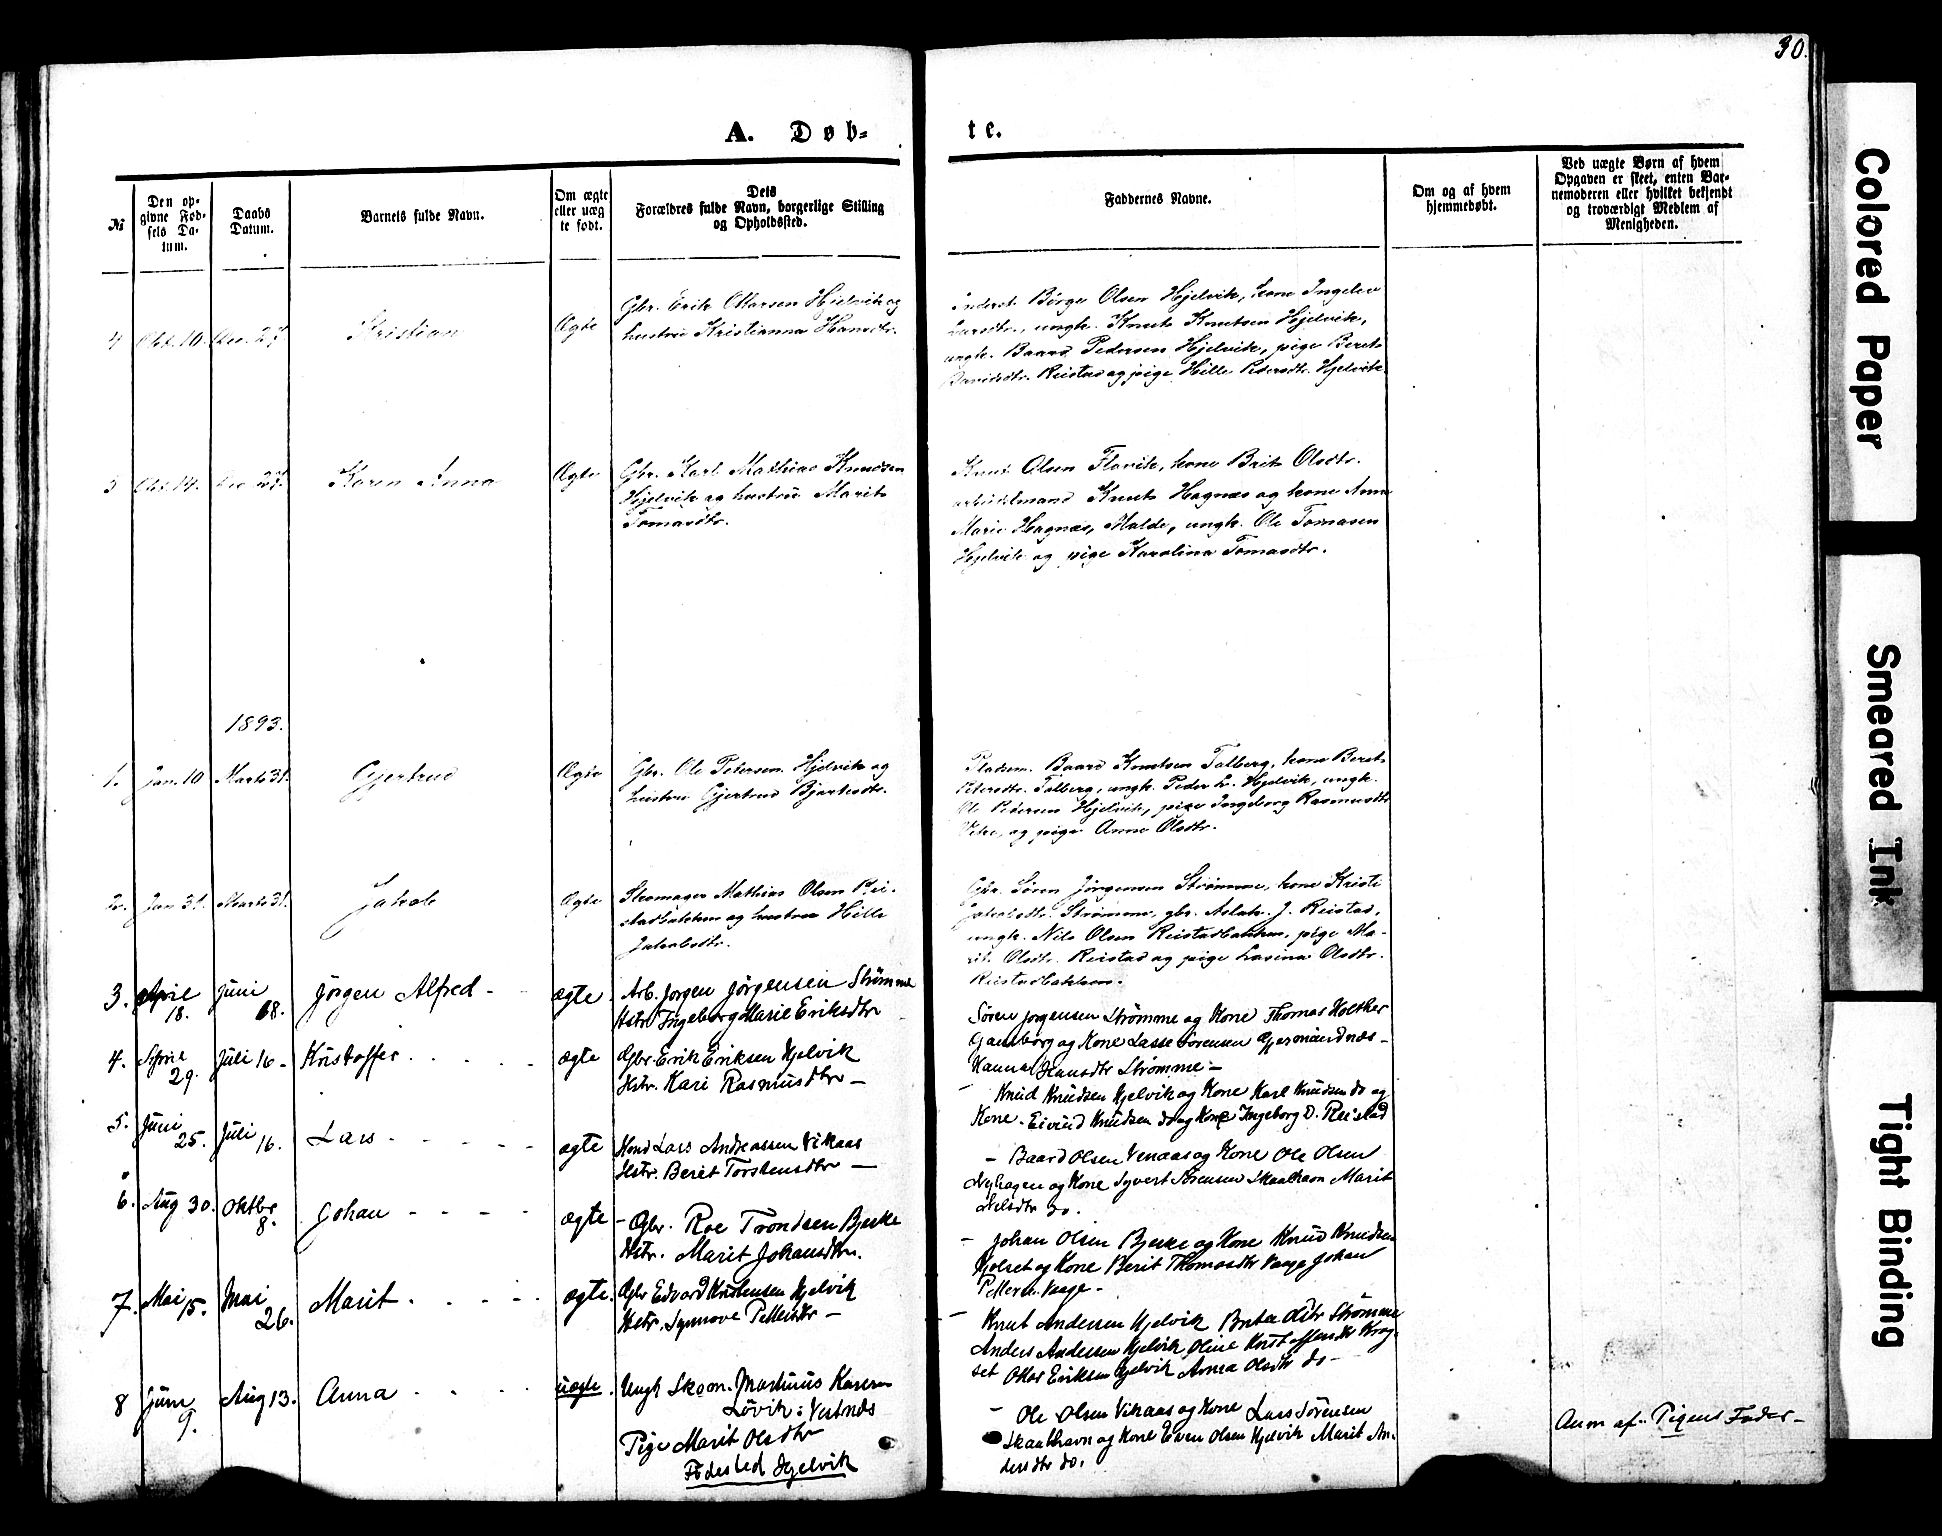 30.
A. Døb-
te.
№
Den op-
givne Fød-
sels Da-
tum.
Daabs
Datum.
Barnets fulde Navn.
Om ægte
eller uæg
te født.
Dets
Forældres fulde Navn, borgerlige Stilling
og Opholdssted.
Faddernes Navne.
Om og af hvem
hjemmedøbt.
Ved uægte Børn af hvem
Opgaven er skeet, enten Bar-
nemoderen eller hvilket bekjendt
og troværdigt Medlem af
Menigheden.
4
Okt. 10.
Dec. 27.
Kristian
Ægte
Gbr. Erik Hjelvik og
hustru Kristianna Hansdtr.
Inderst. Børge Olsen Hjelvik, kone Ingeleu
Larsdtr., ungk. Knut Knutsen Hjelvik,
ungk. Baard Pedersen Hjelvik, pige Beret
Reistad og pige Hille Pedersdtr. Hjelvik.
5
Okt. 14.
Dec. 27.
Karen Anna
Ægte
Gbr. Karl Mathias Knudsen
Hjelvik og hustru Marit
Tomasdtr.
Knut Olsen Flovik, kone Brit Olsdtr.
arbeidsmand Knut Hagnæs og kone Anne
Marie Hagnæs, Molde, ungk. Ole Tomasen
Hjelvik og pige Karolina Tomasdtr.
1893.
1.
Jan. 10
Marts 31.
Gjertrud
Ægte
Gbr. Ole Petersen Hjelvik og
hustru Gjertrud Bjartesdtr.
Pladsm. Baard Knutsen Talberg, kone Beret
Petersdtr. Talberg, ungk. Peder L. Hjelvik, ungk.
Ole Pedersen Hjelvik, pige Ingeborg Rasmusdtr.
og pige Anne Olsdtr.
2.
Jan 31.
Marts 31.
Jakob
Ægte
Skomager Mathias Olsen Rei-
stadbakken og hustru Hille
Jakobsdtr.
Gbr. Søren Jørgensen Strømme, kone Kristi
Jakobsdtr. Strømme, gbr. Aslak J. Reistad,
ungk. Nils Olsen Reistadbakken, pige Ma-
rit Olsdtr. Reistad og pige Lasina Olsdtr.
Reistadbakken.
3.
April
18.
Juni
18.
Jørgen Alfred -
ægte
Arb. Jørgen Jørgensen Strømme
Hstr. Ingeborg Marie Eriksdtr
Søren Jørgensen Strømme og Kone Thomas Holther
Gaasborg og Kone Lasse Sørensen Gjermundnæs -
Hanna Hansdtr Strømme -
4.
April
29.
Juli 16 -
Kristoffer - - - -
ægte
Gbr. Erik Eriksen Hjelvik
Hstr. Kari Rasmusdtr -
- Knud Knudsen Hjelvik og Kone Karl Knudsen do og
Kone. Eivind Knudsen do og Kone Ingeborg D. Reistad
5.
Juni
25.
Juli
16.
Lars - - - - -
ægte
Hmd Lars Andreassen Vikaas
Hstr. Beret Torstensdtr -
- Baard Olsen Venaas og Kone Ole Olsen
Nyhagen og Kone Syvert Sørensen Skaalhavn Marit
Nelsdtr do.
6.
Aug 30.
Oktbr
8.
Johan - - - -
ægte
- Gbr. Roe Trondsen Bjerke
Hstr. Marit Johansdtr.
- Johan Olsen Bjerke og Kone Knud Knudsen
Hjelset og Kone Berit Thomasdtr Vaage Johan
Pettersen Vaage -
7.
Mai 15.
Mai
26.
Marit - - - -
ægte.
Gbr Edvard Kristensen Hjelvik
Hstr. Synnove Pettersdtr -
- Knut Andersen Hjelvik Brita Olsdtr Strømme
Anders Andersen Hjelvik Oline Kristoffersdtr Krog-
set Olar Eriksen Hjelvik Anna Olsdtr do -
8
Juni
9.
Aug 13.
Anna - - - -
uægte.
Ungk Skom. Martinus Karsen
Løvik: Vestnæs
Pige Marit Olsdtr
Fødested Hjelvik
- Ole Olsen Vikaas og Kone Lars Sørensen
Skaalhavn og Kone Even Olsen Hjelvik Marit An-
dersdtr do.
Anm af: Pigens Fader -
Colored Paper
Smeared Ink
Tight Binding